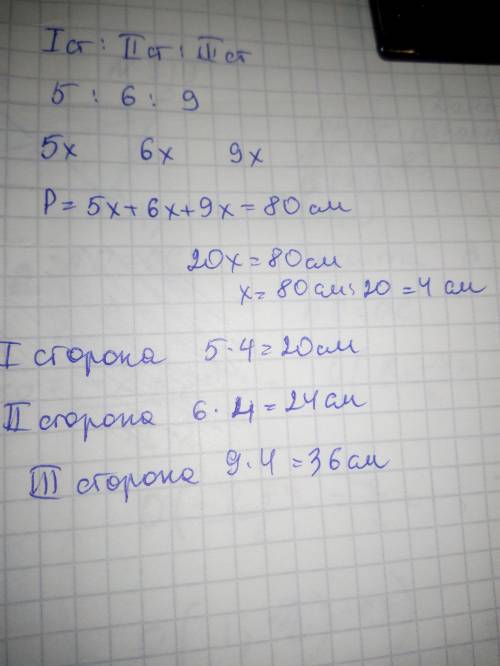 I ст : II ст : III ст
5 : 6 : 9
5x 6x 9x
P = 5x + 6x + 9x = 80 см
20x = 80 см
x = 80 см : 20 = 4 см
I сторона 5 · 4 = 20 см
II сторона 6 · 4 = 24 см
III сторона 9 · 4 = 36 см